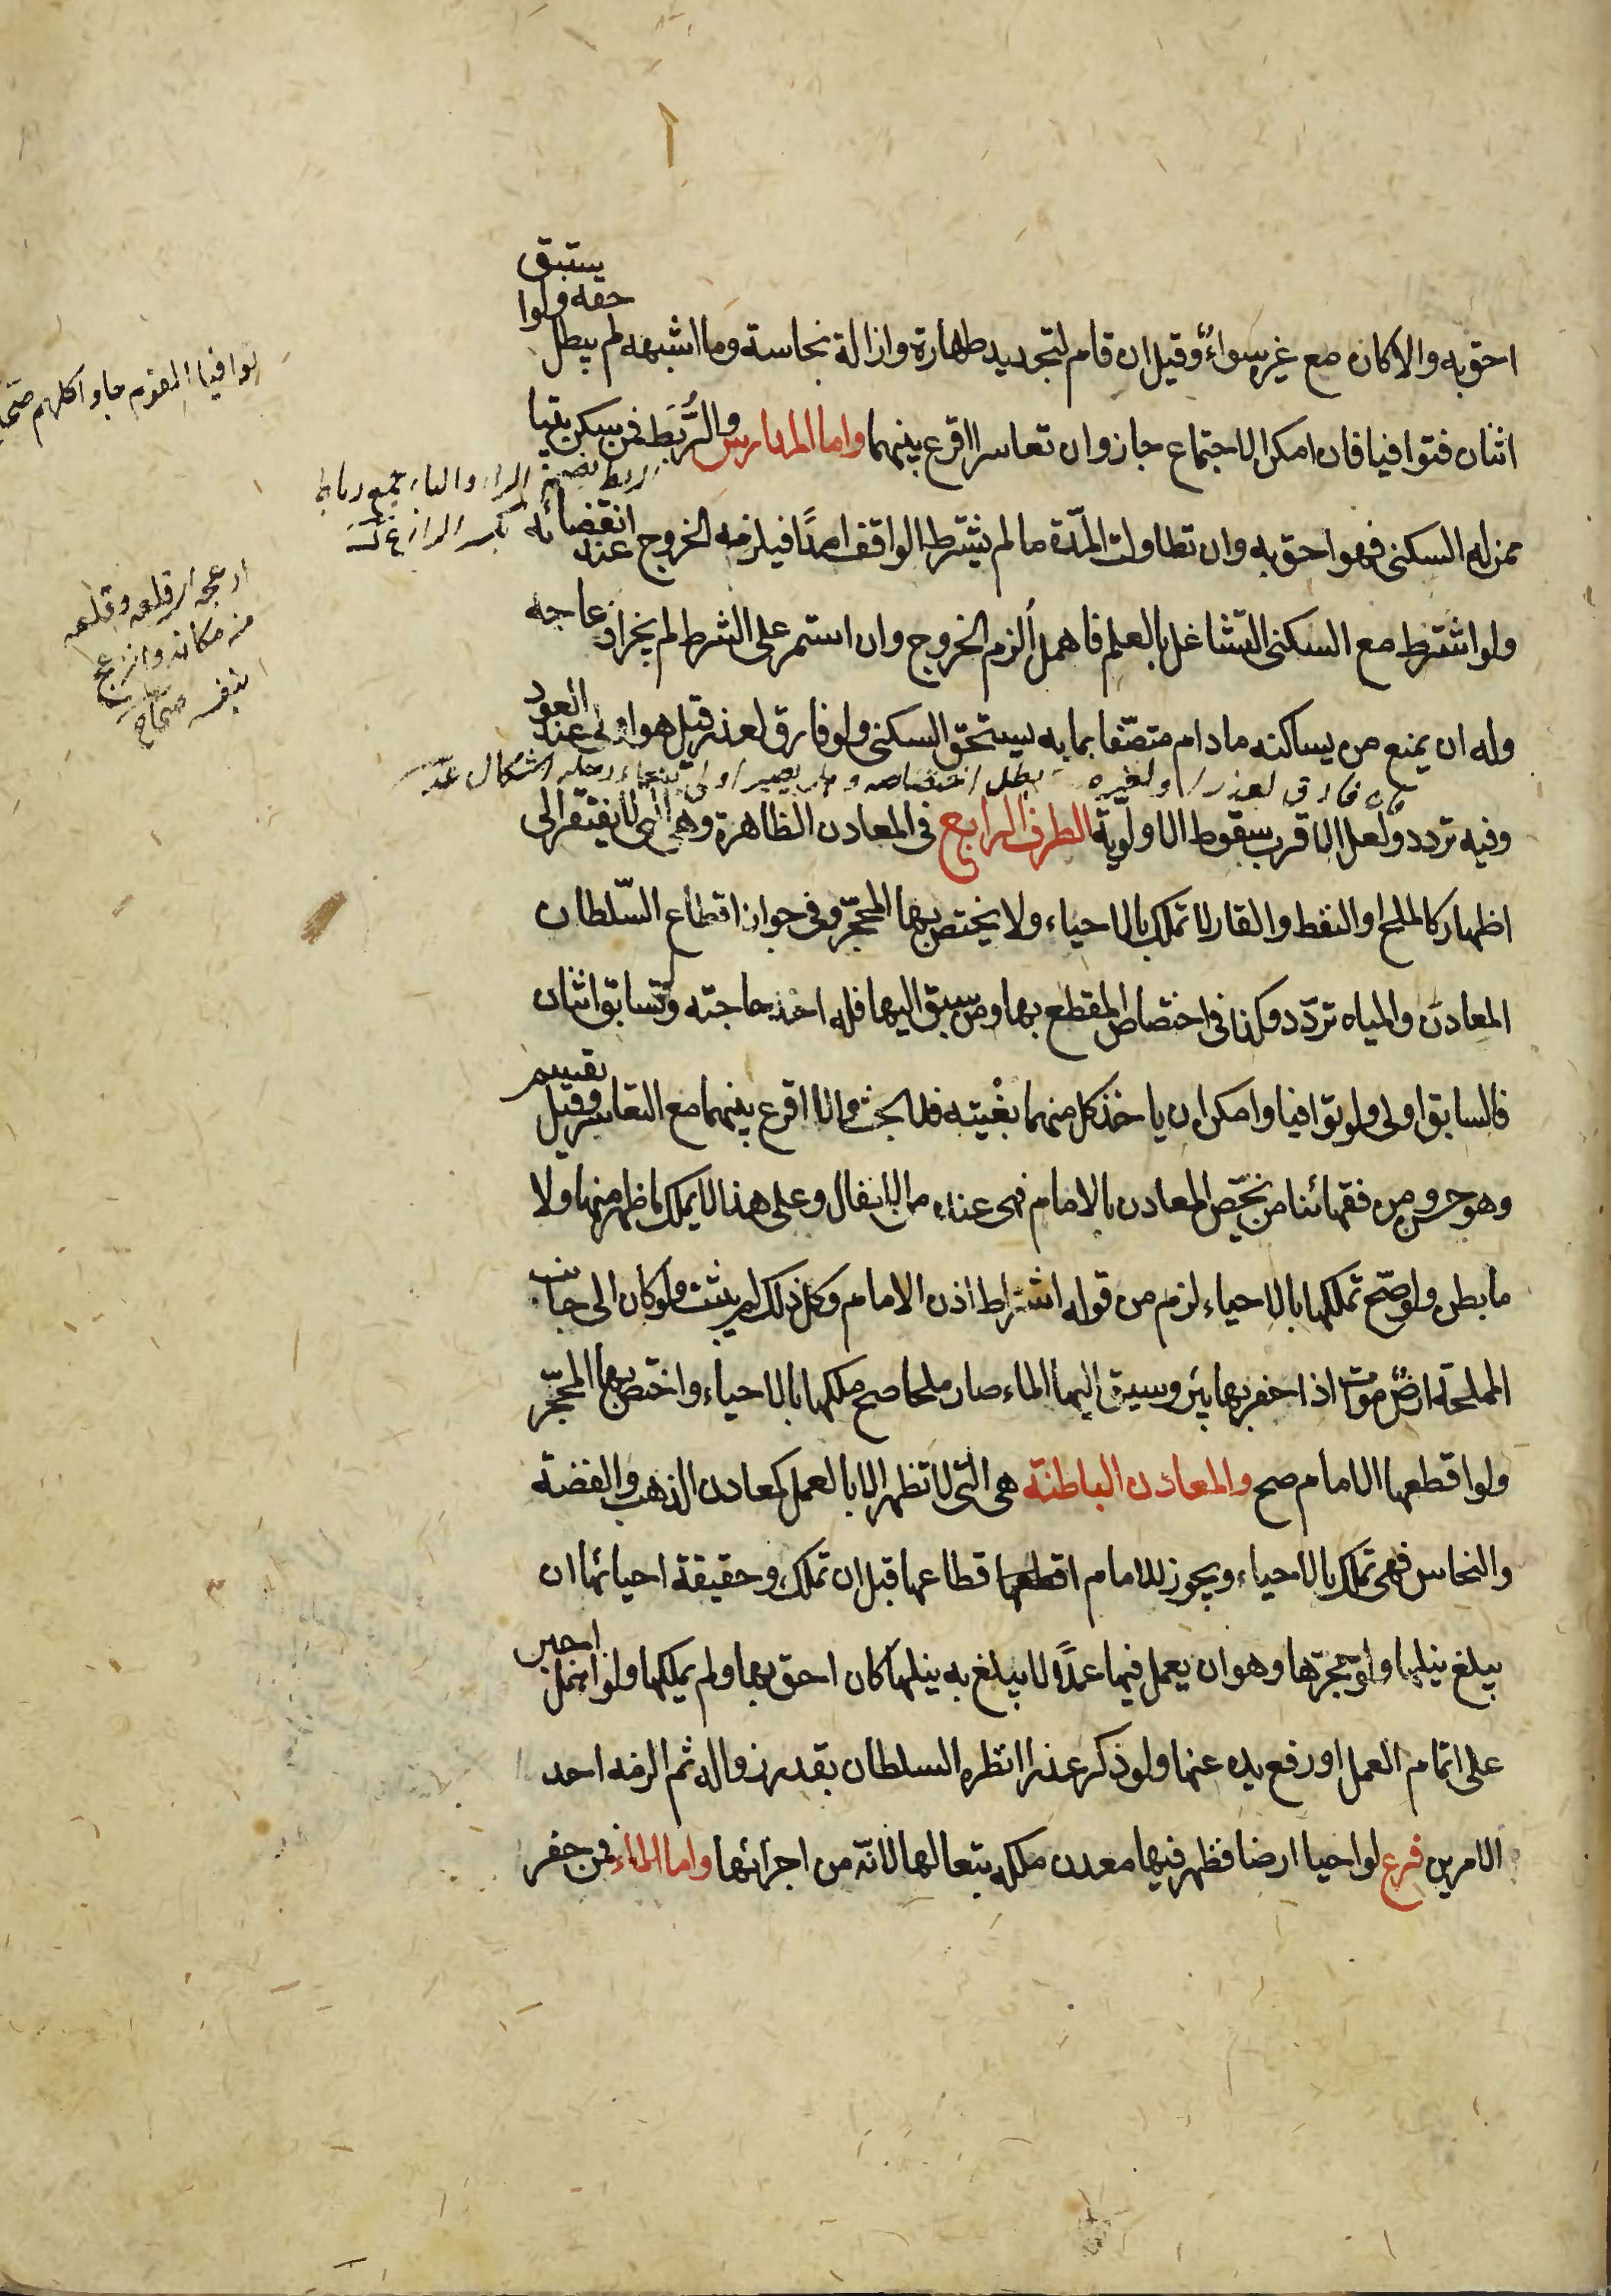 احق به والا كان مع غيره سواء وقيل ان قام لتجديد طهارة وازالة نجاسة وما اشبهه لم يبطل حقه ولو استبق
اثنان فتوافيا فان امكن الاجتماع جاز وان تعاسرا اقرع بينهما واما المدارس والرُّبَط فمن سكن بيتا
ممن له السكنى فهو احق به وان تطاولت المدّة ما لم يشترط الواقف امدًا فيلزمه الخروج عند انقضائه
ولو اشترط مع السكنى التّشاغل بالعلم فاهمل اُلزم الخروج وان استمر على الشرط لم يجز ازعاجه
وله ان يمنع من يساكنه ما دام متصّفا بما به يستحقّ السكنى ولو فارق لعذر قيل هو اولى عند العود
وفيه تردد ولعل الاقرب سقوط الاولويّة الطرف الرابع فى المعادن الظاهرة وهى التى لا تفتقر الى
اظهار كالملح والنفط والقار لا تملك بالاحياء ولا يختص بها المحجّر وفى جواز اقطاع السّلطان
المعادن والمياه تردّد وكذا فى اختصاص المقطع بها ومن سبق اليها فله اخذ حاجته ولو تسابق اثنان
فالسابق اولى ولو توافيا وامكن ان ياخذ كل منهما بغْيته فلا بحث والا اقرع بينهما مع التعاسر وقيل يقسم
وهو حسن ومن فقهائنا من يخصّ المعادن بالامام فهى عنده من الانفال وعلى هذا لا يملك ما ظهر منها ولا
ما بطن ولو صّح تملكها بالاحياء لزم من قوله اشتراط اذن الامام وكل ذلك لم يثبت ولو كان الى جانب
المملحة ارضٌ موات اذا حفر بها بئر وسيق اليها الماء صار ملحا صح ملكها بالاحياء واختص بها المحجّر
ولو اقطعها الامام صح والمعادن الباطنة هى التى لا تظهر الا بالعمل كمعادن الذهب والفضة
والنحاس فهى تملك بالاحياء ويجوز للامام اقطعها قطاعها قبل ان تملك وحقيقة احيائها ان
يبلغ نيلها ولو حجرّها وهو ان يعمل فيها عملًا لا يبلغ به نيلها كان احق بها ولم يملكها ولو اهمل اجبر
على اتمام العمل او رفع يده عنها ولو ذكر عذرا انظره السلطان بقدر زواله ثم الزمه احد
الامرين فرع لو احيا ارضا فظهر فيها معدن ملكه تبعا لها لانّه من اجزائها واما الماء فمن حفر
توافينا القوم جاوا كلهم صحاح
الربط بضم الراء والباء جمع رباط
بكسر الراء
ازعجه اى قلعه وقلعه
من مكانه وانزعج
بنفسه صحاح
فان فارق لعذر او لغيره بطل اختصاصه